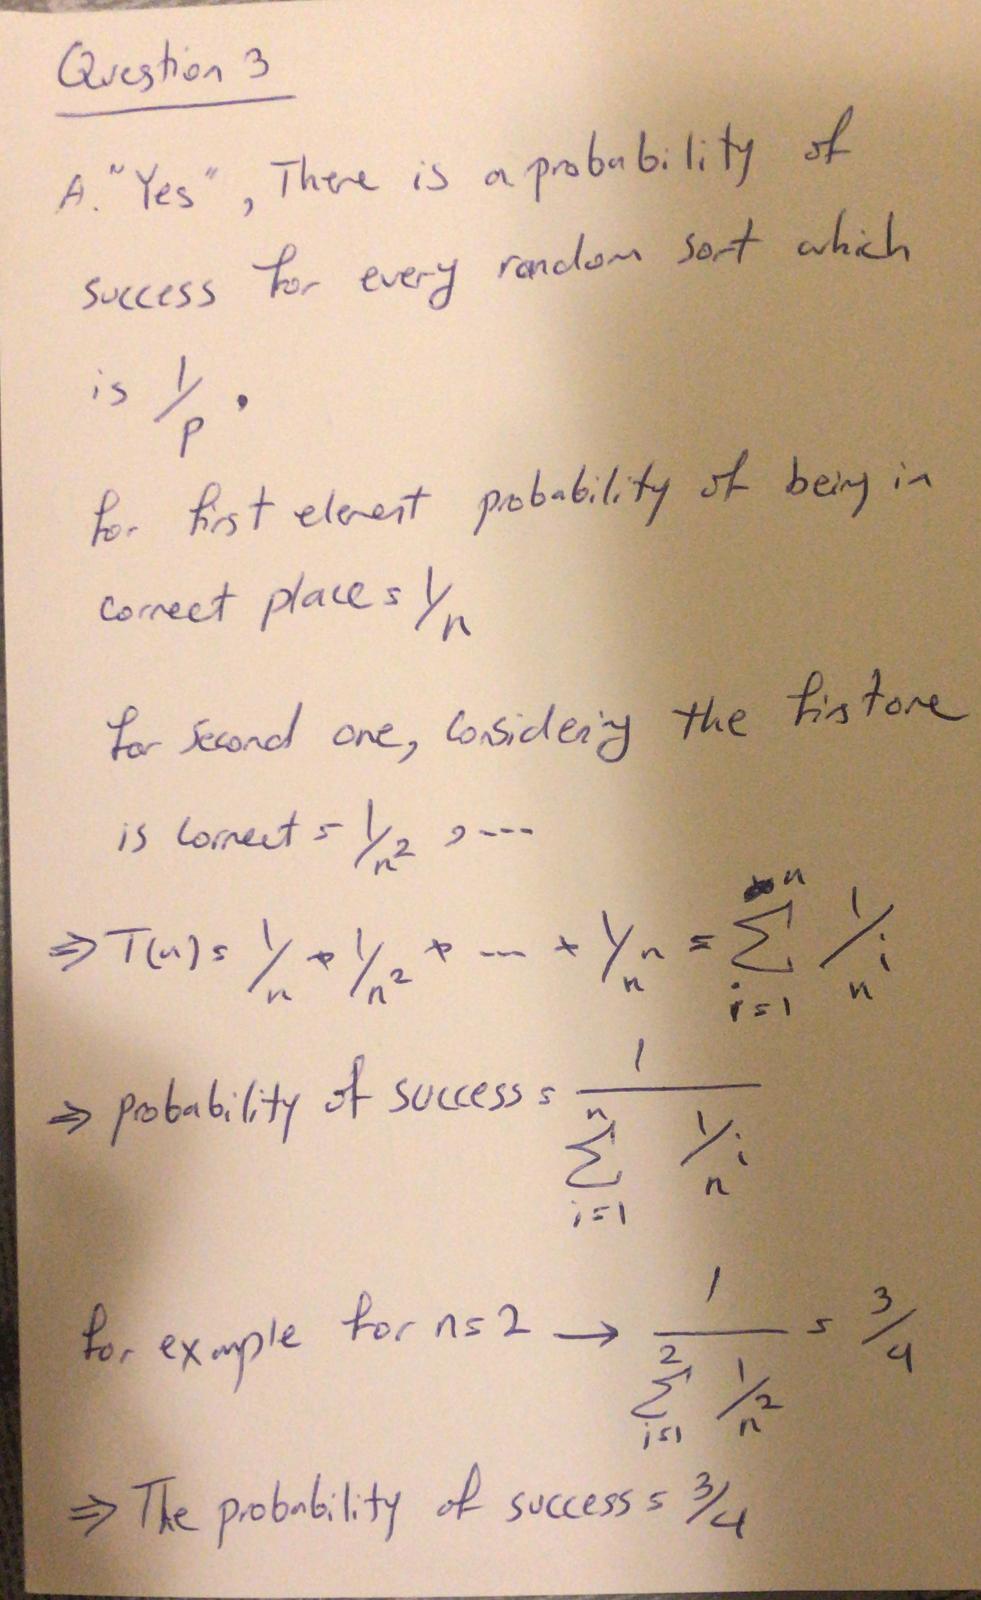 Question 3
A. "Yes", There is a probability of
success for every random sort which
is 1/p.
for first element probability of being in
correct place = 1/n
for second one, considering the first one
is correct = 1/n², ...
⇒ T(n) = 1/n * 1/n² * ... * 1/nⁿ = ∑ᵢ₌₁ⁿ 1/nⁱ
⇒ probability of success = 1/(∑ᵢ₌₁ⁿ 1/nⁱ)
for example for n=2 → 1/(∑ᵢ₌₁² 1/n²) = 3/4
⇒ The probability of success = 3/4